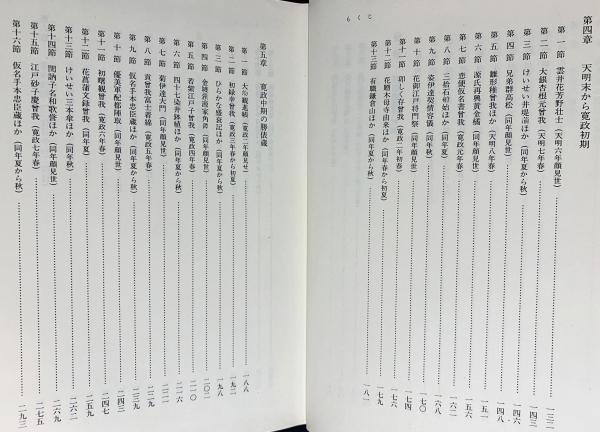 もくじ
第四章　天明末から寛政初期
第一節　雲井花芳野壮士（天明六年顔見世）……一三二
第二節　大銀杏根元曾我（天明七年春）……一四三
第三節　けいせい井堤𬜻ほか（同年夏から秋）……一四四
第四節　兄弟群高松（同年顔見世）……一四六
第五節　雛形稚曾我ほか（天明八年春）……一四八
第六節　源氏再興黄金橘（同年顔見世）……一五一
第七節　恋便仮名書曾我（寛政元年春）……一五六
第八節　三拾石艠始ほか（同年夏）……一六二
第九節　姿伊達契情容儀（同年秋）……一七〇
第十節　花御江戸将門祭（同年顔見世）……一七二
第十一節　卯しく存曾我（寛政二年初春）……一七六
第十二節　花贈木母寺由来ほか（同年春から初夏）……一七九
第十三節　有職鎌倉山ほか（同年夏から秋）……一八一
第五章　寛政中期の勝俵蔵
第一節　大𫝶勧進帳（寛政二年顔見せ）……一八八
第二節　初緑幸曾我（寛政三年春から初夏）……一九二
第三節　ひらかな盛衰記ほか（同年夏から秋）……一九八
第四節　金𥫣源源家角鍔（同年顔見世）……二〇二
第五節　若紫江戸子曾我（寛政四年春）……二一〇
第六節　四十七染井鉢植ほか（同年夏から秋）……二一六
第七節　菊伊達大門（同年顔見世）……二二一
第八節　貢曾我富士着綿（寛政五年春）……二二九
第九節　仮名手本忠臣蔵ほか（同年夏から秋）……二三九
第十節　優美軍配都陣取（同年顔見世）……二四三
第十一節　初曙観曾我（寛政六年春）……二四七
第十二節　花菖蒲文禄曾我（同年夏）……二五九
第十三節　けいせい三本傘ほか（同年夏から秋）……二六二
第十四節　閏訥子名和歌誉ほか（同年顔見世）……二六九
第十五節　江戸砂子慶曾我（寛政七年春）……二七五
第十六節　仮名手本忠臣蔵ほか（同年夏から秋）……二九三